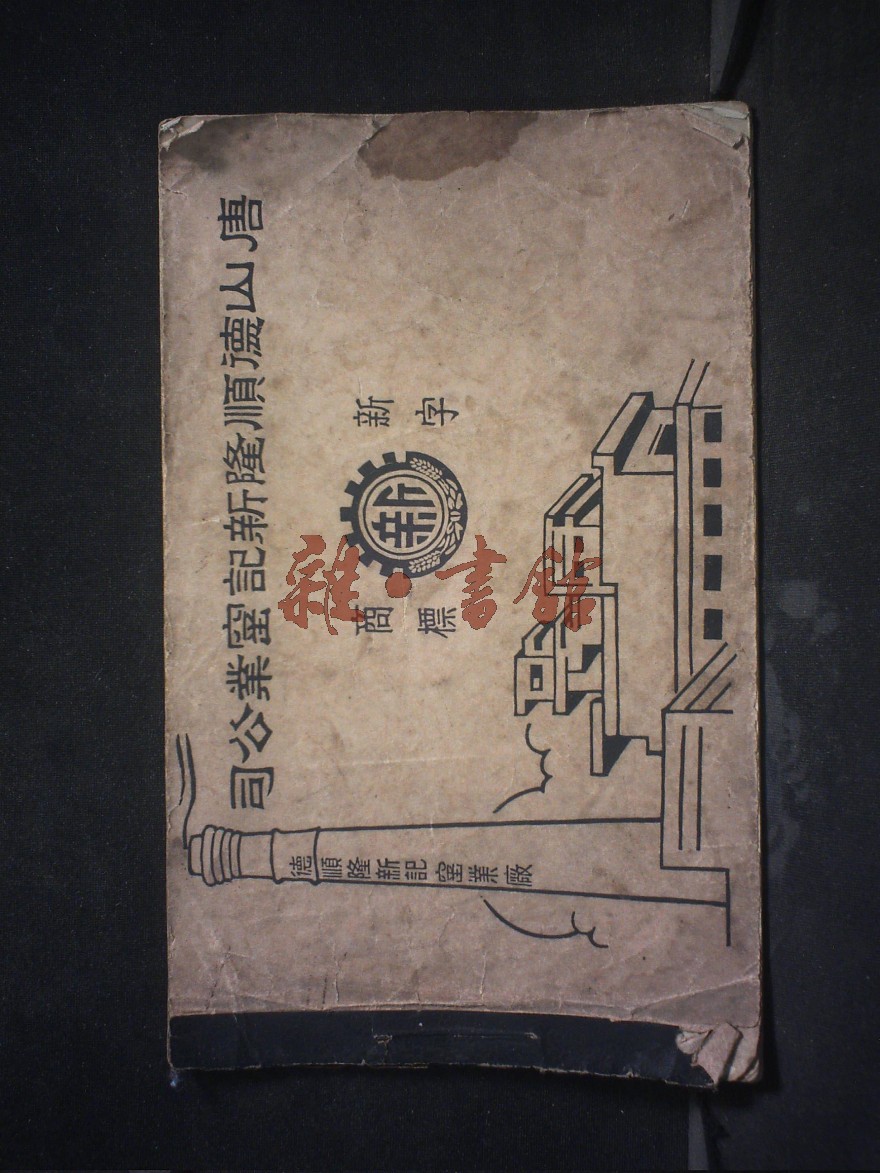 唐山德順隆新記窰業公司
新字
新
商標
德順隆新記窰業廠
雜·書館